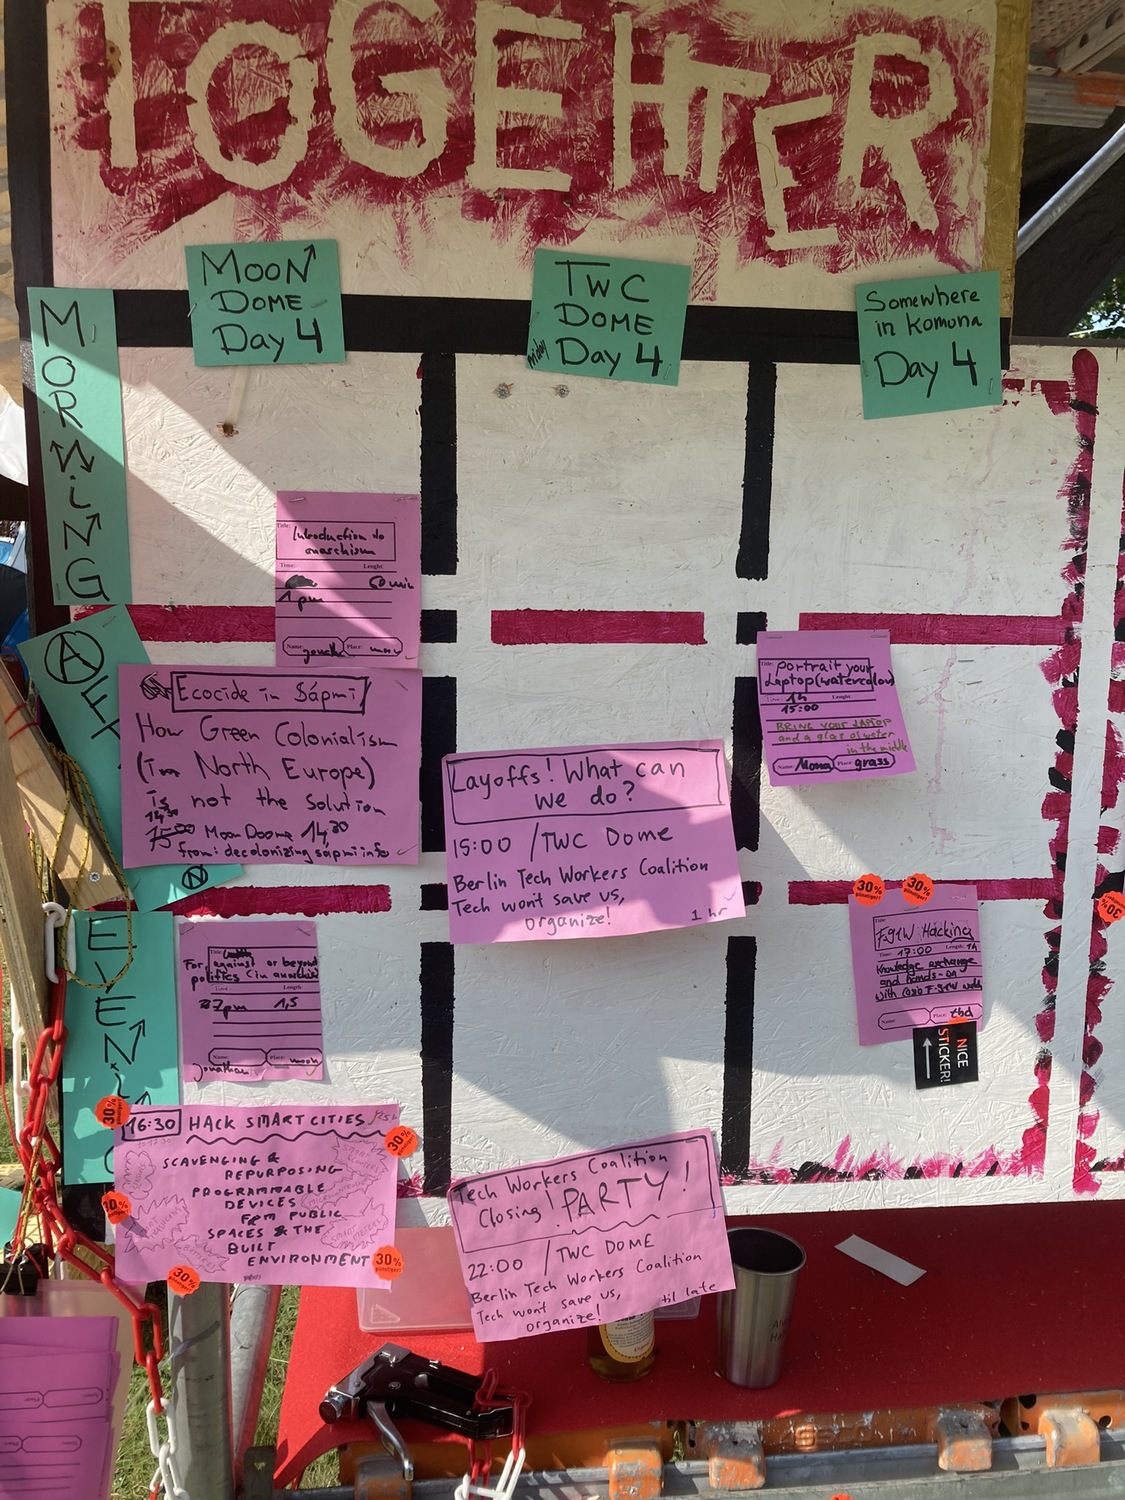 TOGEHTER
MOON
DOME
Day 4
TWC
DOME
Friday
Day 4
Somewhere
in Komuna
Day 4
MORNiNG
Title:
Introduction to
anarchism
Time:
Lenght:
60 min
1 pm
Name:
Place:
moon
AFT
N
Ecocide in Sápmi
How Green Colonialism
(in North Europe)
is not the Solution
14:30
15:00 Moon Doome 14:30
from: decolonizing sápmi info
Title:
portrait your
Laptop (watercolour)
Time:
1h
Lenght:
15:00
BRING YOUR LAPTOP
and a glas of water
in the middle
Name:
Mona
Place:
grass
Layoffs! What can
we do?
15:00 / TWC Dome
Berlin Tech Workers Coalition
Tech won't save us,
organize!
1 hr
EVENiN
Title:
For, against or beyond
politics (in anarchism)
Time
Length
7pm
1,5
Name:
Jonathan
Place:
moon
30%
günstiger!
30%
günstiger!
30%
Title:
F91W Hacking
Time:
17:00
Length:
1h
Knowledge exchange
and hands-on
with Casio F-91W watch
Name
Place:
tbd
NICE
STICKER!
30%
günstiger!
16:30
HACK SMART CITIES
30%
günstiger!
SCAVENGING &
REPURPOSING
PROGRAMMABLE
DEVICES
FROM PUBLIC
SPACES & THE
BUILT
ENVIRONMENT
30%
30%
günstiger!
30%
günstiger!
Tech Workers Coalition
Closing PARTY!
22:00 / TWC DOME
Berlin Tech Workers Coalition
Tech won't save us,
organize!
til late